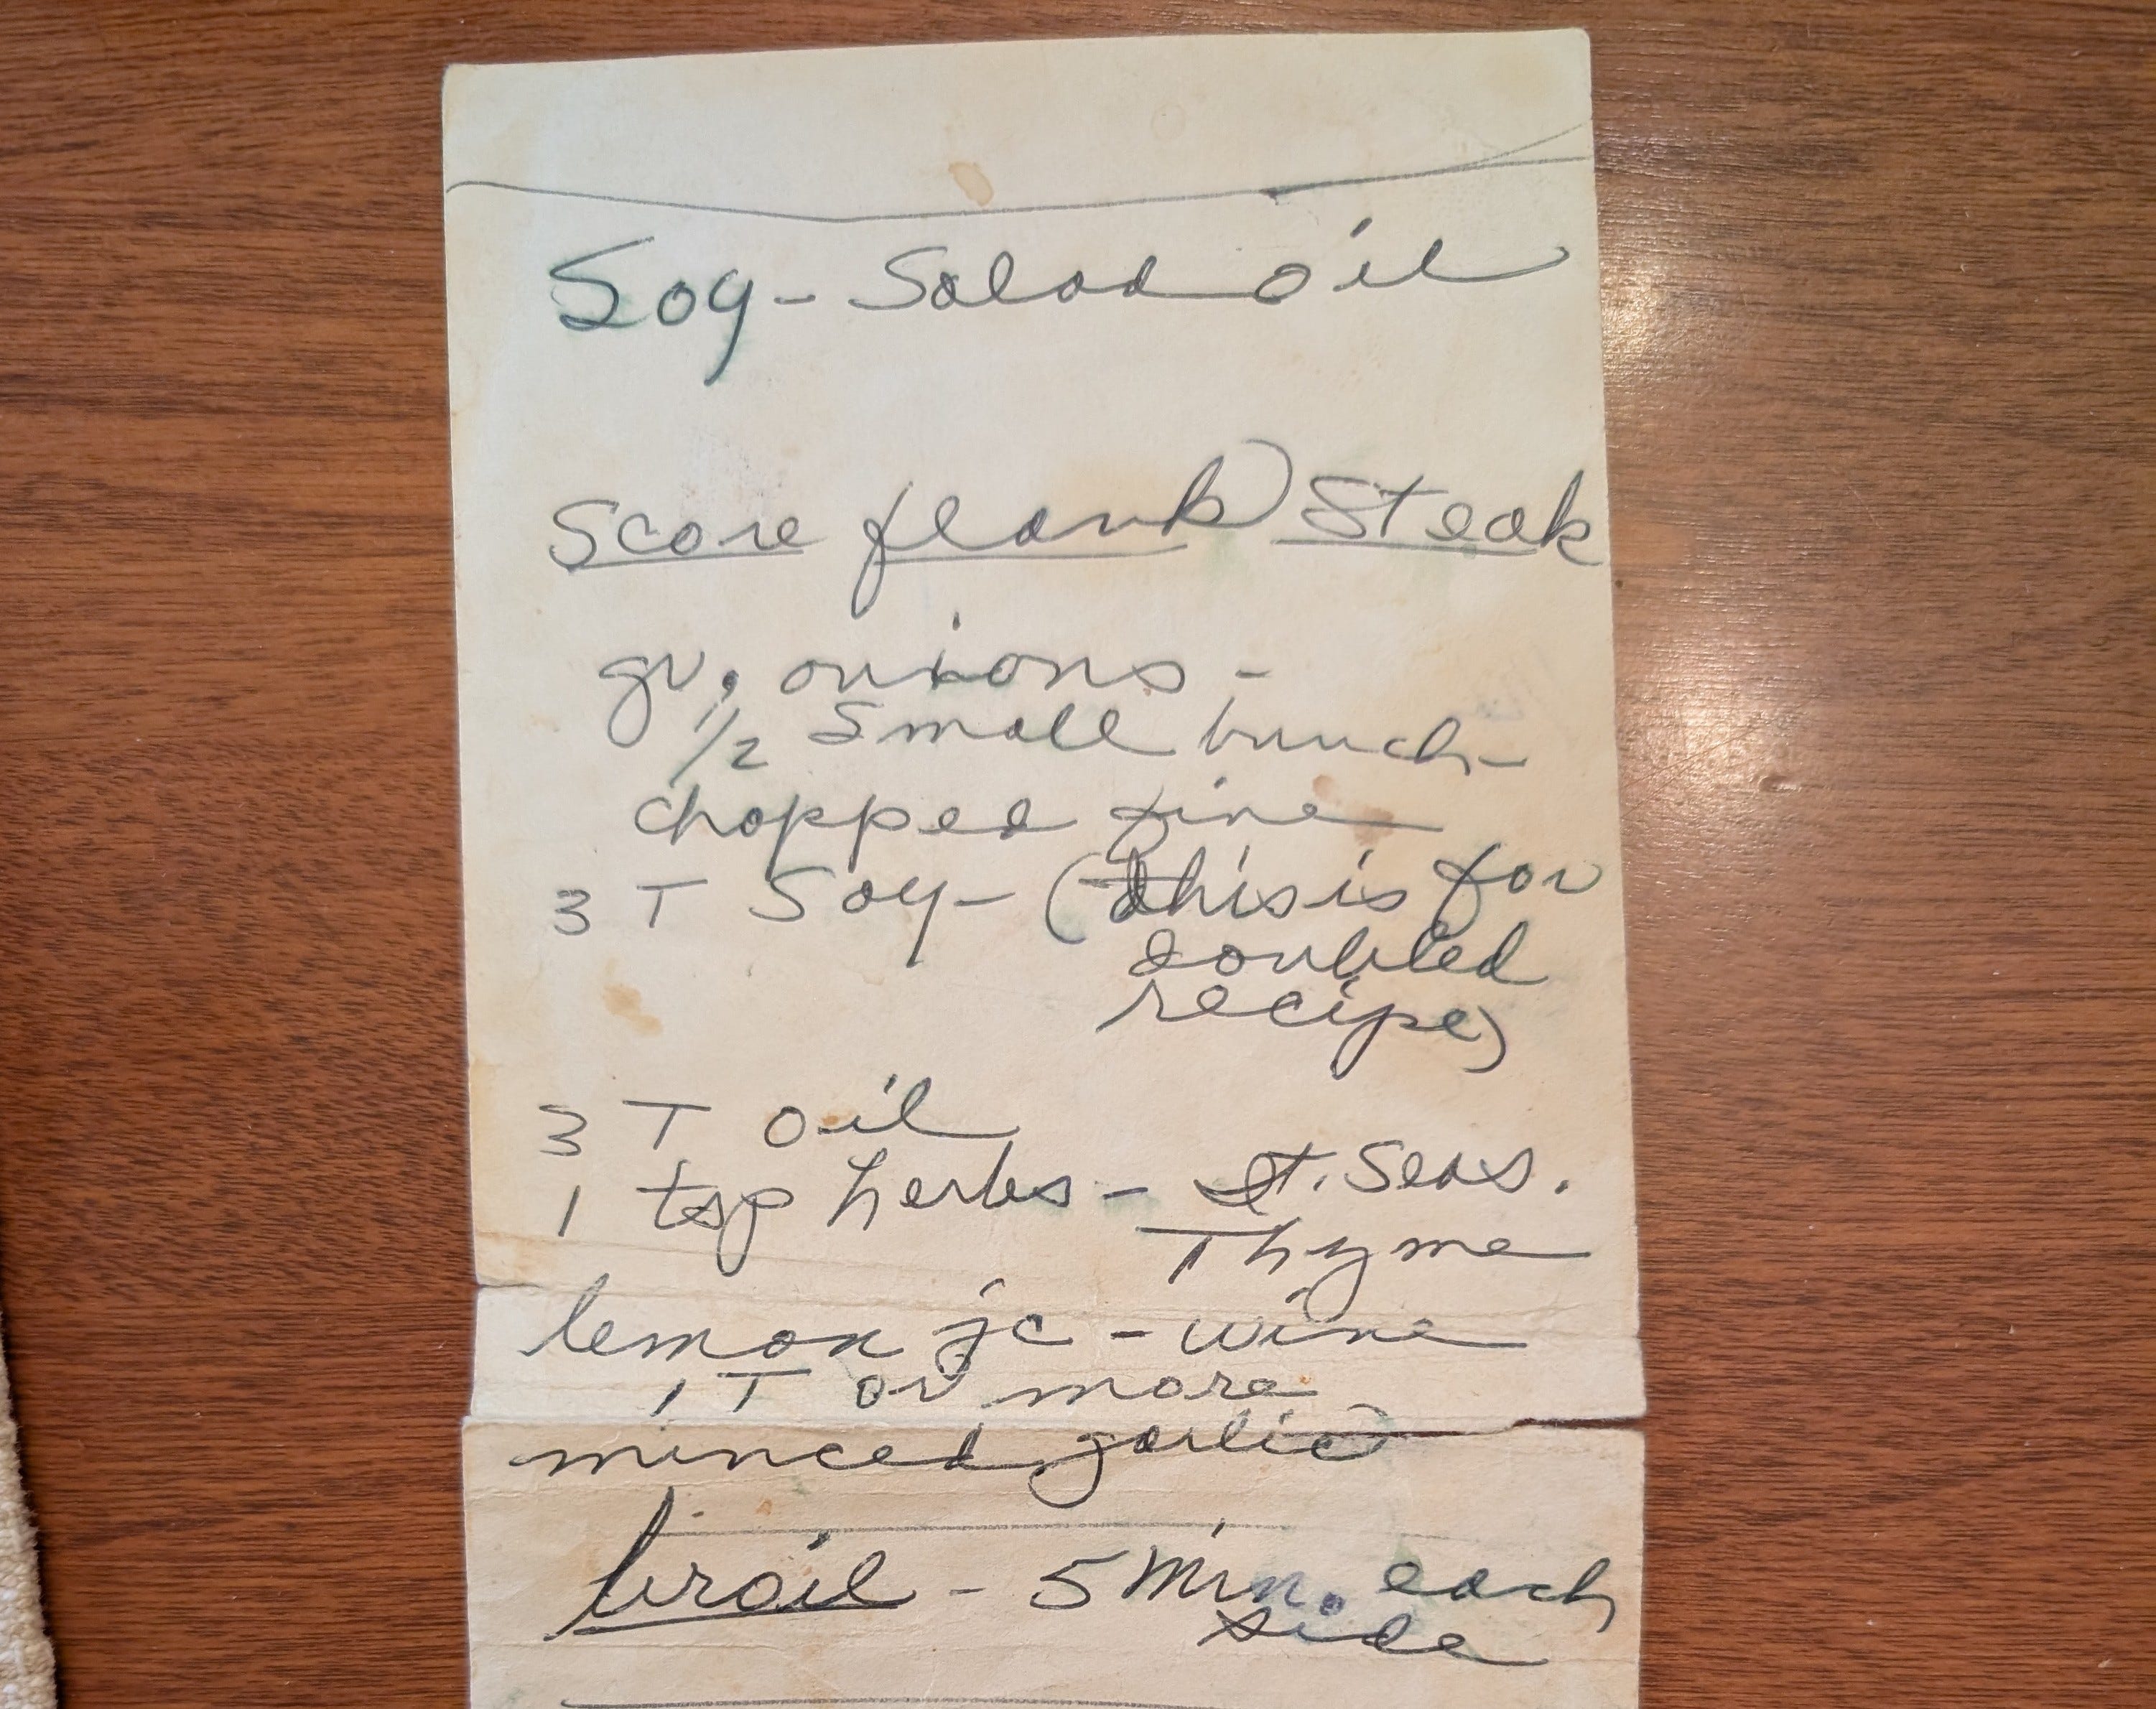 Soy - Salad oil
Score flank Steak
gr. onions -
1/2 small bunch -
chopped fine
3 T Soy - (this is for
doubled
recipe)
3 T oil
1 tsp herbs - It. Seas.
Thyme
lemon jc - wine
1 T or more
minced garlic
broil - 5 Min. each
side